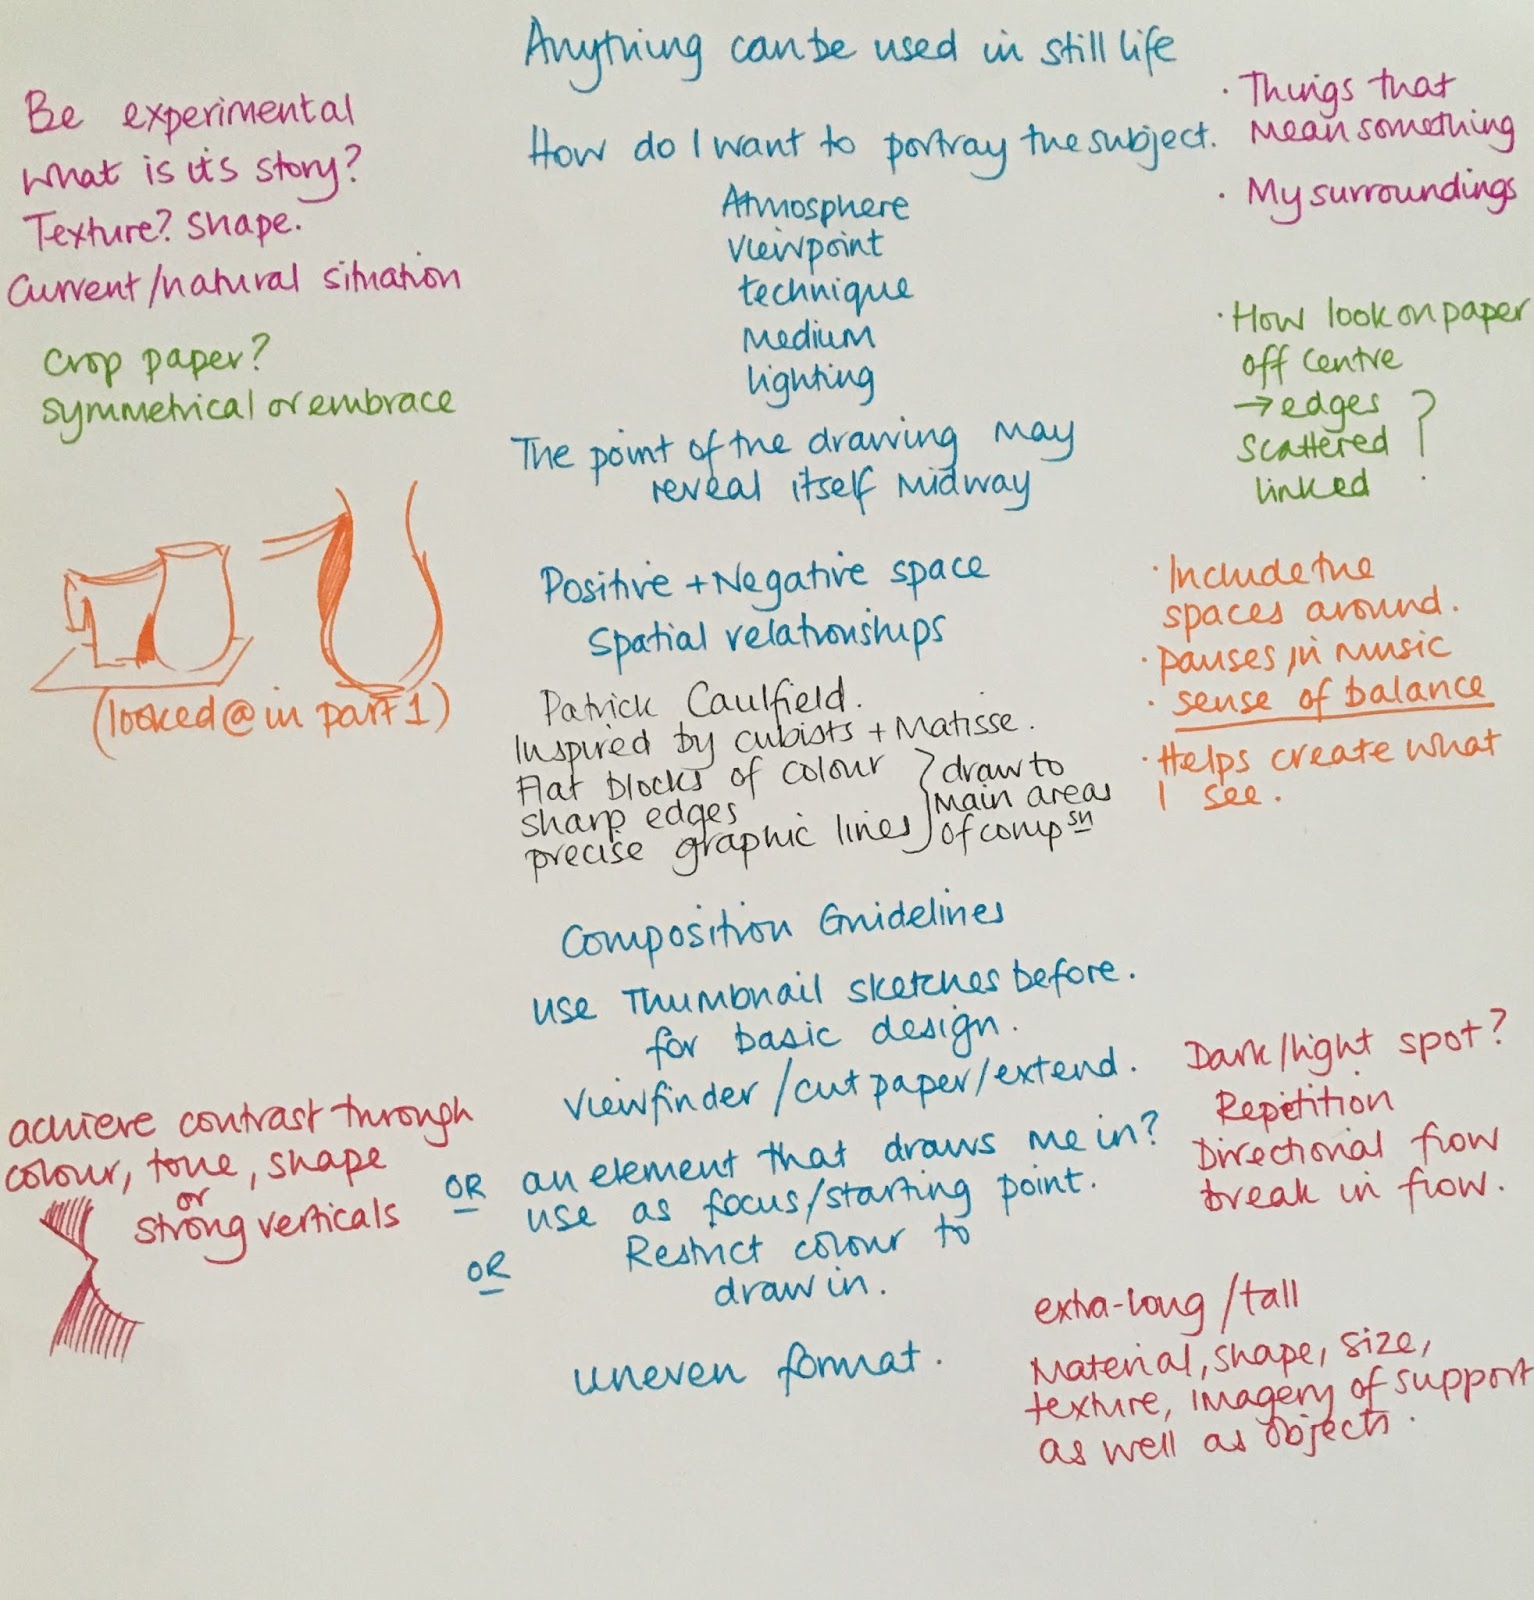 Anything can be used in still life
Be experimental
What is its story?
Texture? Shape.
Current/natural situation
How do I want to portray the subject.
· Things that
Mean something
· My surroundings
Atmosphere
Viewpoint
technique
Medium
lighting
Crop paper?
symmetrical or embrace
· How look on paper
off centre
→ edges
scattered
linked
?
The point of the drawing may
reveal itself midway
(looked @ in part 1)
Positive + Negative space
Spatial relationships
· Include the
spaces around.
· pauses in music
· sense of balance
· Helps create what
I see.
Patrick Caulfield.
Inspired by cubists + Matisse.
Flat blocks of colour
sharp edges
precise graphic lines
draw to
main areas
of compsn
Composition Guidelines
use Thumbnail sketches before.
for basic design.
Viewfinder/cut paper/extend.
Dark/light spot?
Repetition
Directional flow
break in flow.
achieve contrast through
colour, tone, shape
or
strong verticals
OR an element that draws me in?
use as focus/starting point.
OR Restrict colour to
draw in.
uneven format.
extra-long/tall
Material, shape, size,
texture, imagery of support
as well as objects.